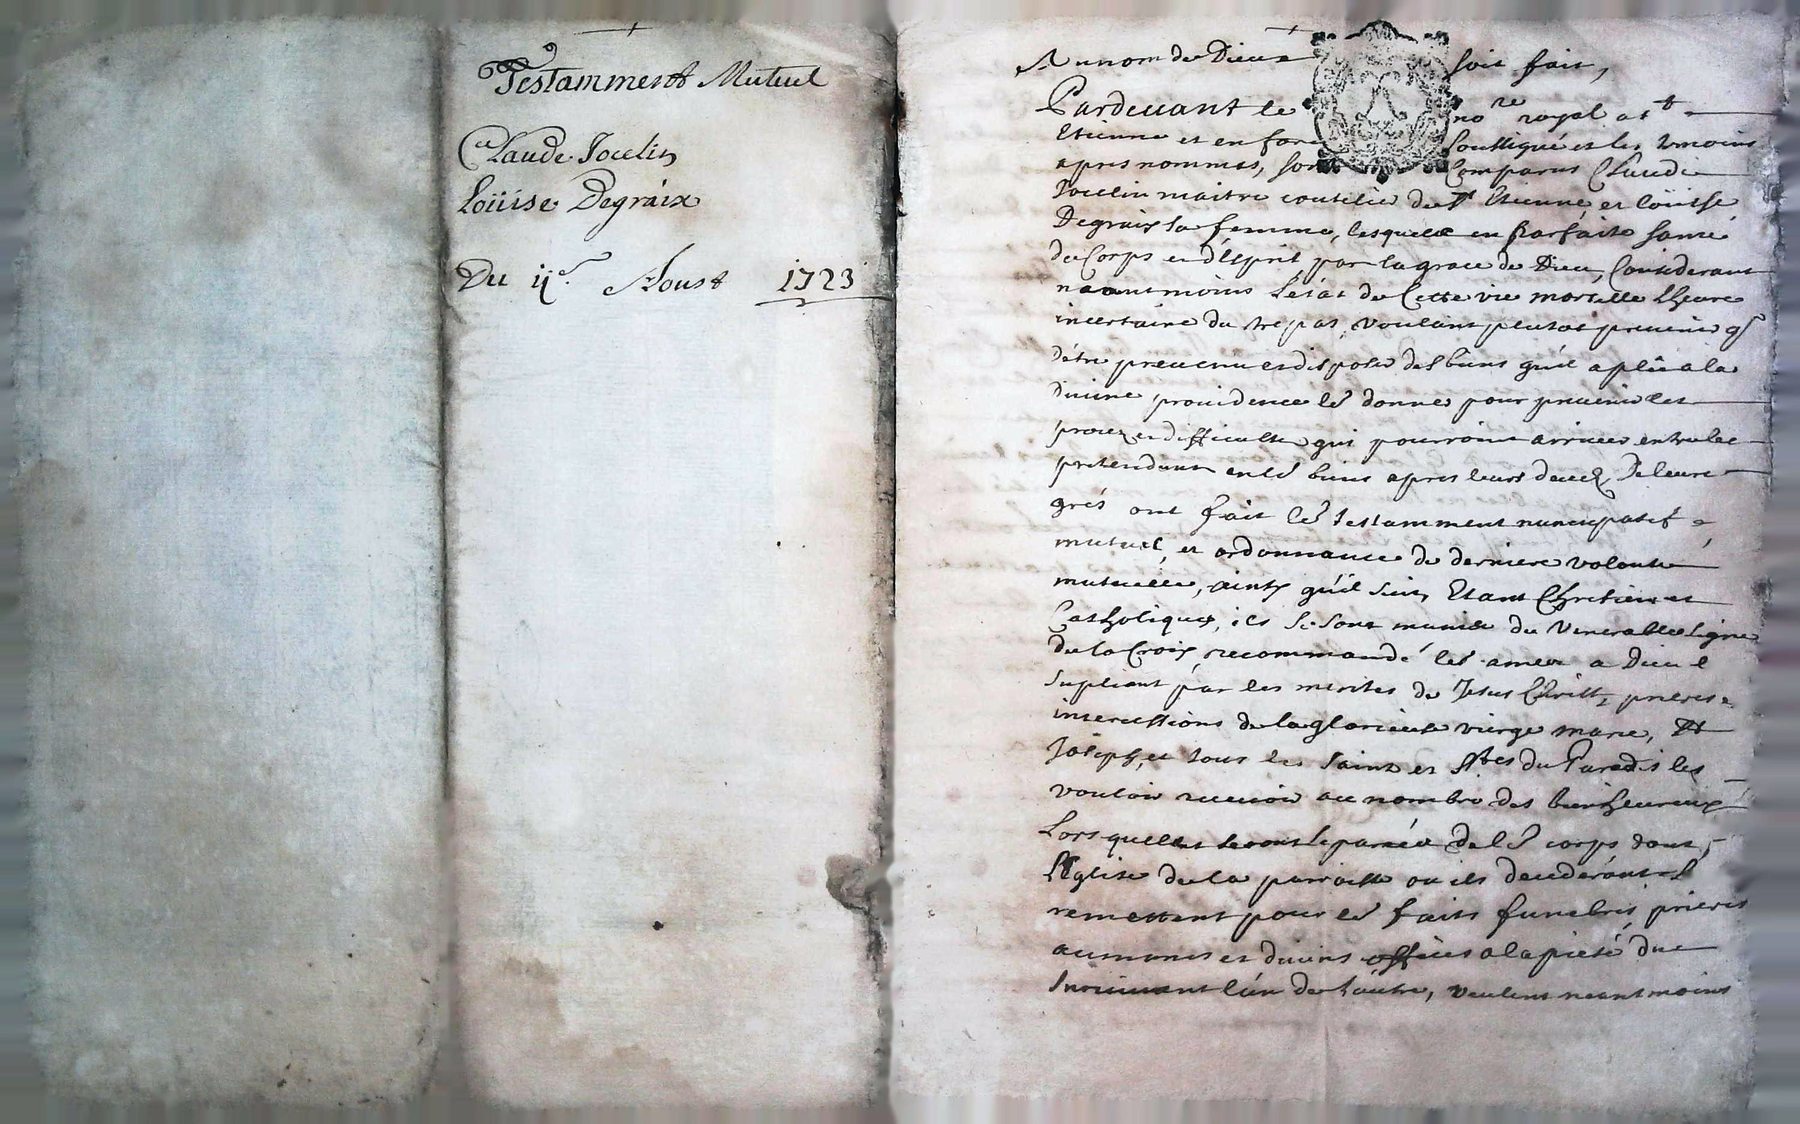 Testamment Mutuel
Claude Jocelin
Loüise Degraix
Du 11e. Aoust 1723
Au nom de Dieu soit fait,
Pardevant le nore royal a st
Etienne et en forez soussigné et les temoins
apres nommes, sont Comparus Claude
Jocelin maitre coutelier de st Etienne, et Loüise
Degraix sa femme, lesquels en parfaite santé
de Corps et d'Esprit par la grace de Dieu, Considerant
neantmoins l'etat de Cette vie mortelle l'heure
incertaine du trepas, voulant plutot prevenir q
d'etre prevenu et disposer des biens qu'il a plû a la
divine providence leur donner pour prevenir les
procez et difficultes qui pourroint arriver entre les
pretendant en leurs biens apres leurs decez, De leurs
grés ont fait leur testamment nuncupatif
mutuel, et ordonnance de derniere volonté
mutuelle, ainsy qu'il suit, Etant Chretiens et
Catholiques, ils se sont munis du venerable signe
de la Croix, recommandé les ames a Dieu l
supliant par les merites de Jesus Christ, prieres
intercessions de la glorieuse vierge marie, st
Joseph, et tous les saints et stes du Paradis les
vouloir recevoir au nombre des bienheureux
Lors quelles seront separées de leurs corps dont
l'Eglise de la parroisse ou ils decederont
remettent pour les faits funebres, prieres
aumones et divins offices a la pieté du
survivant l'un de l'autre, veulent neantmoins